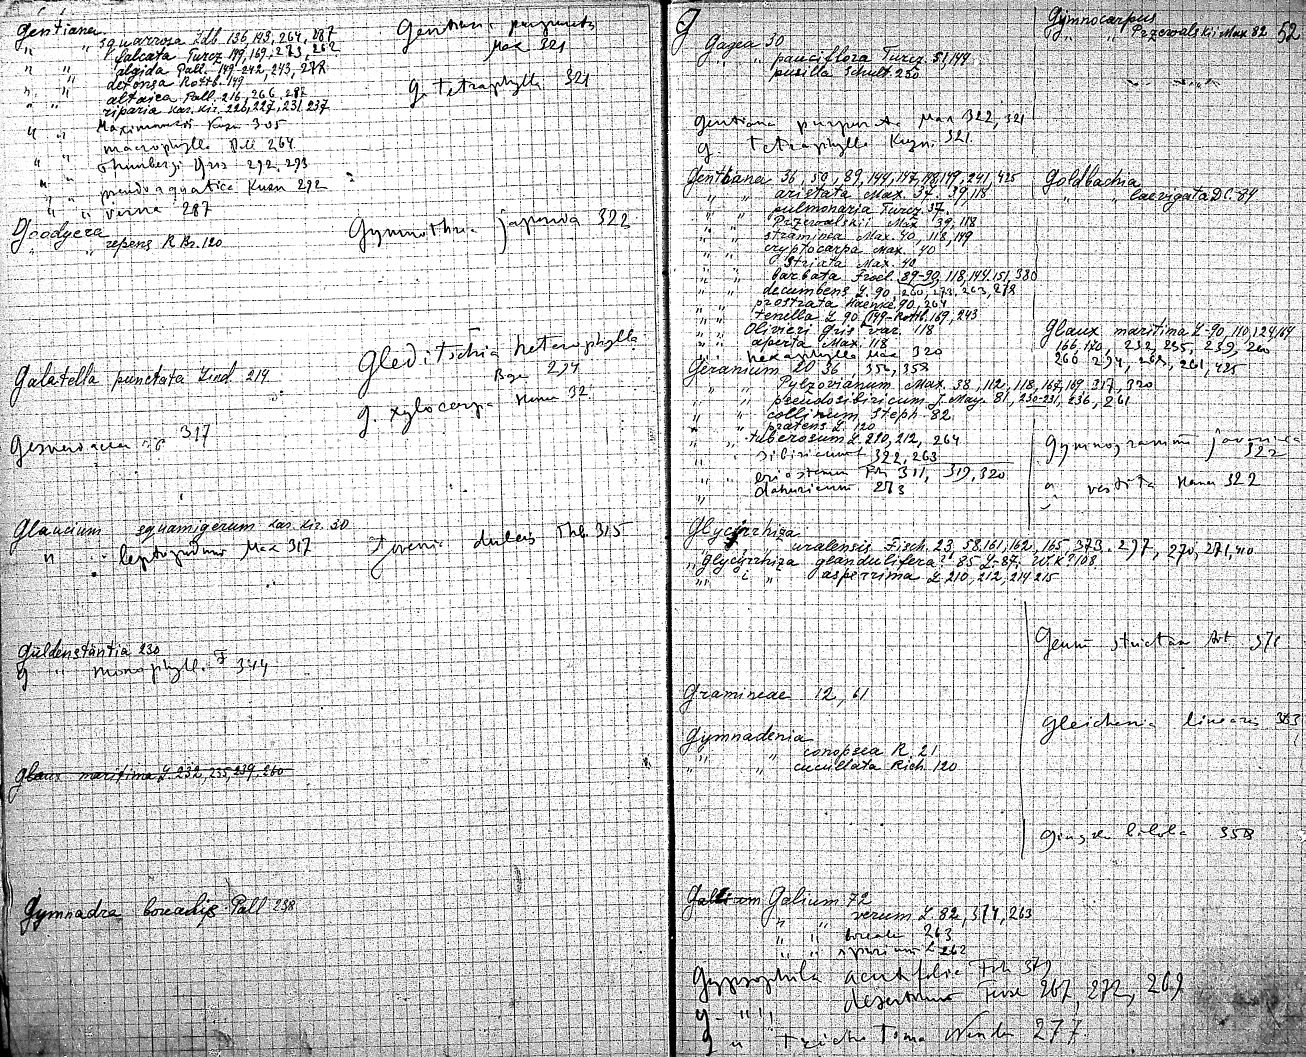 Gentiana
" " squarrosa Ldb. 136, 143, 264, 287
" falcata Turcz 149, 169, 273, 262
" " algida Pall. 149-242, 243, 278
" " detonsa Rottb. 149
" " altaica Pall. 216, 266, 287
" " riparia Kar. Kir. 226, 227, 231, 237
" " 305
macrophylla Pall 264
" " Thunbergi Gris 292, 293
" " pseudoaquatica Kusn 292
" " verna 287
Goodyera
" " repens R Br. 120
Galatella punctata Lind. 219
317
Glaucium squamigerum Kar. Kir. 30
" Max 317
Güldenstäntia 230
G " monophyll. F 344
Glaux maritima L. 232, 235, 239, 260
Gymnadra borealis Pall 238
Gentiana purpurata
Max 321
G. tetraphylla 321
Gymnothrix japonica 322
Gleditschia heterophylla
Bge 274
G. xylocarpa Hance
Torenia Thb. 315
G
Gagea 30
" " pauciflora Turcz. 51, 144
pusilla Schult. 230
Gentiana purpurata Max 322, 321
G. tetraphylla Kuzn. 321
Gentiana 36, 50, 89, 144, 147, 148, 149, 241, 425
" " aristata Max. 37. 39, 118
pulmonaria Turcz. 37.
" " Przewalskii Max. 39, 118
" " straminea Max. 40, 118, 149
" " cryptocarpa Max. 40
" " striata Max. 40
" " barbata Froel. 89-90, 118, 144, 151, 380
" " decumbens L. 90, 260, 273, 263, 278
" " prostrata Haenke 90, 264
" " tenella L 90 (149-Rottb. 169, 243
" " Olivieri Gris var. 118
" " aperta Max. 118
" " hexaphylla Max 320
Geranium 20 36, 352, 358
" " Pylzovianum Max. 38, 112, 118, 167, 169, 317, 320
" " pseudosibiricum J. May. 81, 230-231, 236, 261
" " collinum Steph. 82
" " pratens L 120
" " tuberosum L. 210, 212, 264
" " sibiricum L 322, 263
" eriostemon Fsh 311, 319, 320
" dahuricum 273
Glycyrrhiza
uralensis Fisch. 23, 58, 161, 162, 165, 373. 297, 270, 271, 410
" Glycyrrhiza glandulifera? 85 L-87, W. K? 108
" " " asperrima L 210, 212, 214 215
Gramineae 12, 61
Gymnadenia
" " conopsea R. 21
" " cucullata Rich. 120
Gallium Galium 72
" " verum L 82, 374, 263
" " boreale 263
" " spurium L 262
Gypsophila acutifolia Fsh 379
G - " " desertorum Fenzl 267, 272, 269
G " trichotoma Wend 277
Gymnocarpus
" " Przewalskii Max 82 52
Goldbachia
" " laevigata DC. 84
Glaux maritima L-90, 110, 124, 164
166, 170, 232, 235, 239, 260
266 274, 268, 261, 425
Gymnogramme javanica
322
" vestita Hance 322
Geum strictum Ait.
Gleichenia linearis 363
Gingko biloba 358